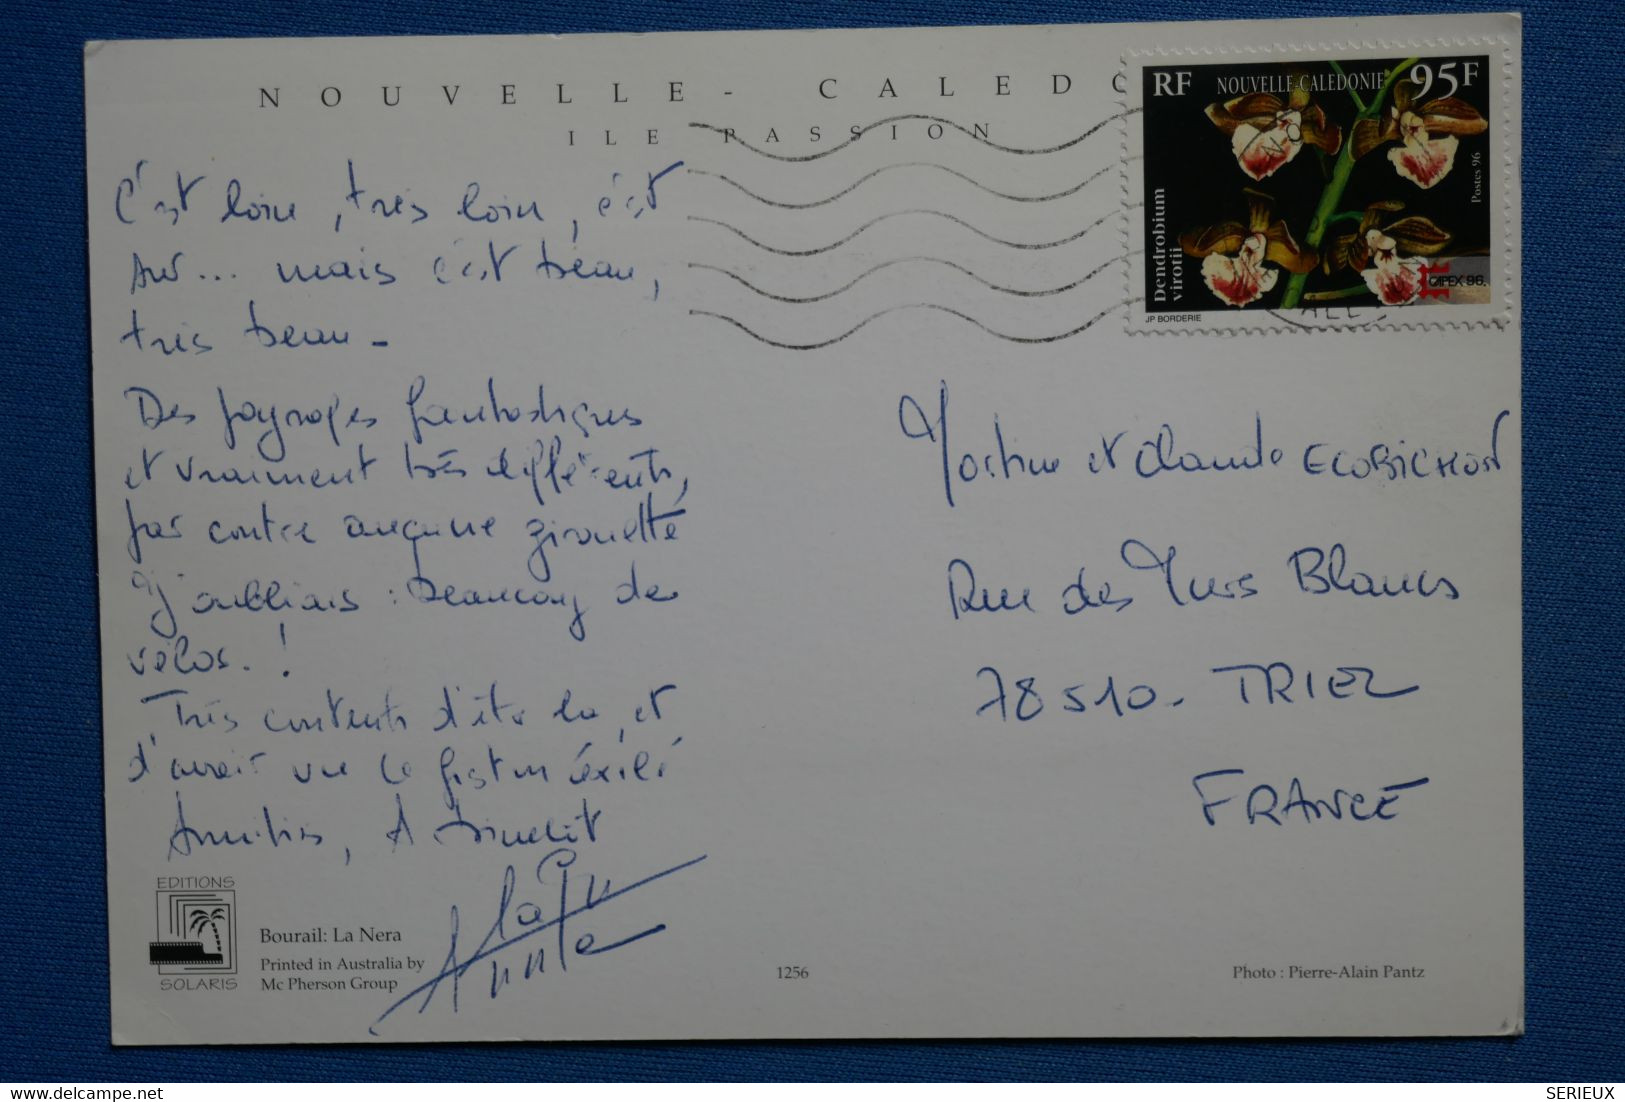 NOUVELLE - CALEDO
ILE PASSION
RF NOUVELLE-CALEDONIE 95F
Postes 96
Dendrobium
virotii
CAPEX 96.
JP BORDERIE
C'est loin, très loin, c'est
sur... mais c'est beau,
très beau -
Des paysages fantastiques
et vraiment très différents,
par contre aucune girouette
J'oubliais : beaucoup de
vélos. !
Très contents d'être là, et
d'avoir vu le fiston exilé
Amitiés, A bientôt
Annie
Martine et Claude ECOBICHON
Rue des Murs Blancs
78510 - TRIEL
FRANCE
EDITIONS
SOLARIS
Bourail: La Nera
Printed in Australia by
Mc Pherson Group
1256
Photo : Pierre-Alain Pantz
SERIEUX